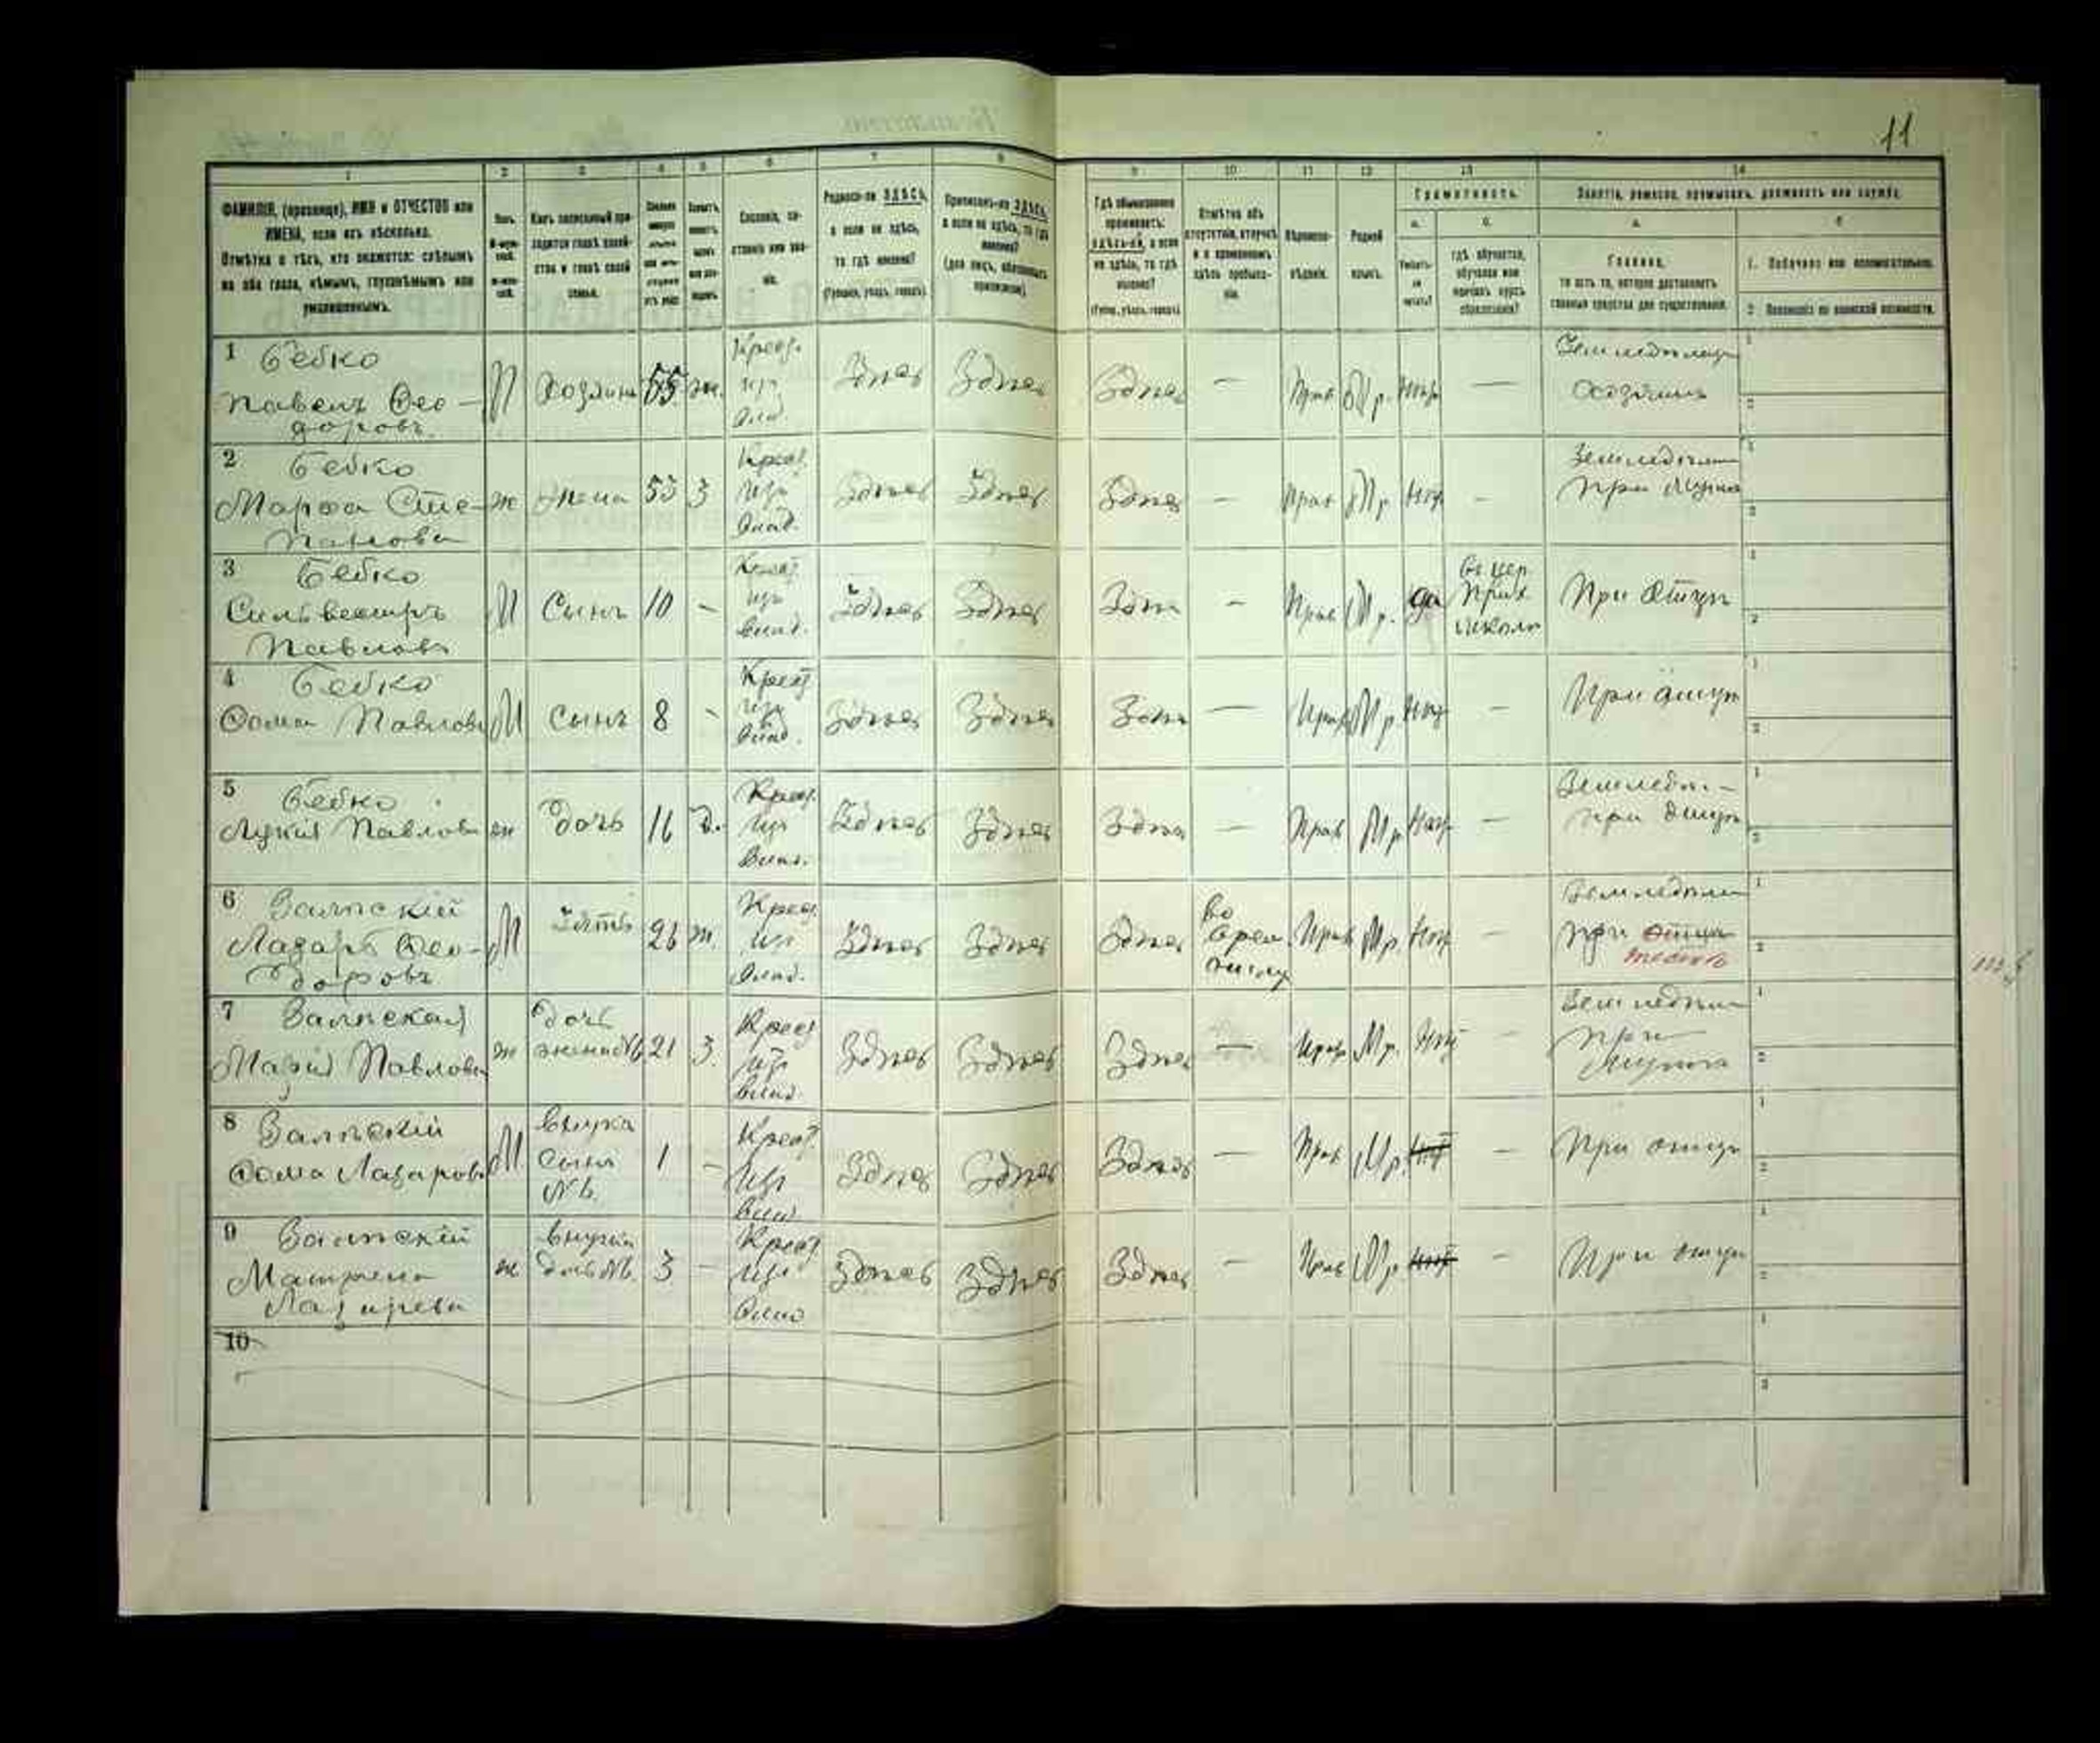 11
1 2 3 4 5 6 7 8 9 10 11 12 13 14
ФАМИЛІЯ, (прозвище), ИМЯ и ОТЧЕСТВО или
ИМЕНА, если ихъ нѣсколько.
Отмѣтка о тѣхъ, кто окажется: слѣпымъ
на оба глаза, нѣмымъ, глухонѣмымъ или
умалишеннымъ.
Полъ.
Какъ записанный при-
ходится главѣ хозяй-
ства и главѣ своей
семьи.
Сословіе, со-
стояніе или зва-
ніе.
Родился-ли ЗДѢСЬ,
а если не здѣсь,
то гдѣ именно?
(Губернія, уѣздъ, городъ)
Приписанъ-ли ЗДѢСЬ,
а если не здѣсь, то гдѣ
именно?
(для лицъ, обязанныхъ
припискою)
Гдѣ обыкновенно
проживаетъ:
здѣсь-ли, а если
не здѣсь, то гдѣ
именно?
(Губер., уѣздъ, городъ)
Отмѣтка объ
отсутствіи, отлучкѣ
и о временномъ
здѣсь пребыва-
ніи.
Вѣроиспо-
вѣданіе.
Родной
языкъ.
Грамотность.
а. б.
Умѣетъ-
ли
читать?
гдѣ обучается,
обучался или
кончилъ курсъ
образованія?
Занятіе, ремесло, промыселъ, должность или служба.
а. б.
Главное,
то есть то, которое доставляетъ
главныя средства для существованія.
1. Побочное или вспомогательное.
2 Положеніе по воинской повинности.
1 Бебко
Павелъ Фео-
доровъ М Хозяинъ 55 ж. Крест.
изъ
влад. Здѣсь Здѣсь Здѣсь — Прав М р. Нѣт — Земледѣлец
хозяинъ
2 Бебко
Марфа Сте-
панова ж жена 53 З Крест
изъ
влад. Здѣсь Здѣсь Здѣсь — Прав М р Нѣт - Земледѣлие
при мужѣ
3 Бебко
Сильвестръ
Павловъ М Сынъ 10 - Крест
изъ
влад. Здѣсь Здѣсь Здѣсь — Прав М р. да въ цер
прих
школѣ При отцѣ
4 Бебко
Фома Павловъ М сынъ 8 - Крест
изъ
влад. Здѣсь Здѣсь Здѣсь — Прав М р. Нѣт — При отцѣ
5 Бебко
Лукія Павлова ж дочь 16 д. Крест
изъ
влад. Здѣсь Здѣсь Здѣсь — Прав М р. Нѣт — Земледѣ. -
при отцѣ
6
Лазарь Фео-
доровъ М зять 26 ж. Крест
изъ
влад. Здѣсь Здѣсь Здѣсь Прав М р. Нѣт — Земледѣлие
при отцѣ
тестѣ
7
Марія Павлова ж дочь
жена №6 21 З. Крест
изъ
влад. Здѣсь Здѣсь Здѣсь — Прав М р. Нѣт — Земледѣлие
при
мужѣ
8
Фома Лазаровъ М внукъ
сынъ
№6. 1 - Крест
изъ
влад Здѣсь Здѣсь Здѣсь — Прав М р. Нѣт — При отцѣ
9
Матрена
Лазарева ж внучка
дочь №6. 3 — Крест
изъ
влад Здѣсь Здѣсь Здѣсь — Прав М р. Нѣт — При отцѣ
10